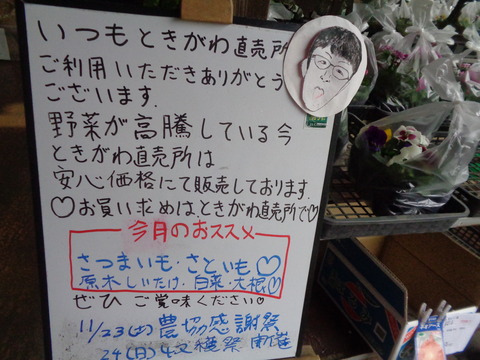 いつもときがわ直売所
ご利用いただきありがとう
ございます.
野菜が高騰している今
ときがわ直売所は
安心価格にて販売しております.
♡お買い求めは、ときがわ直売所で♡
今月のおススメ
さつまいも・さといも♡
原木しいたけ・白菜・大根♡
ぜひ ご賞味ください♡
11/23(土)農協感謝祭
24(日)収穫祭 開催